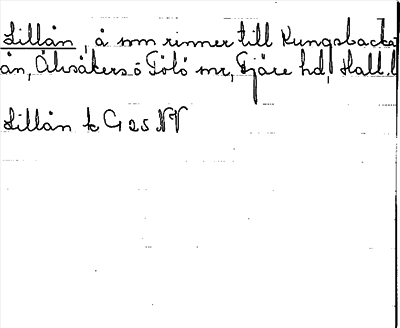 Lillån, å som rinner till Kungsbacka
ån, Älvsåkers o Tölö snr, Fjäre hd, Hall. l
Lillån k G 25 NV